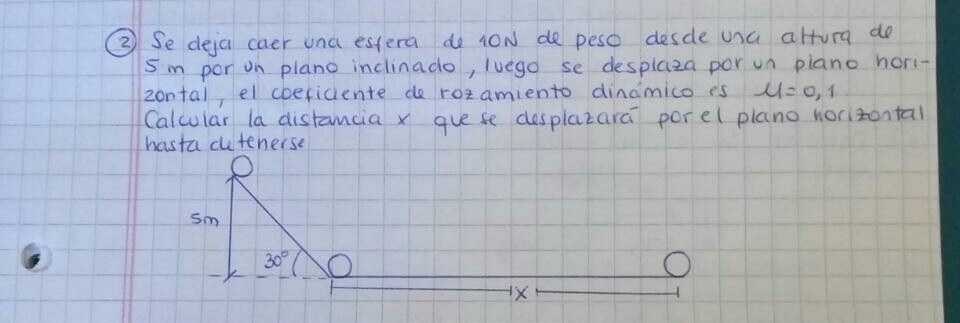 ② Se deja caer una esfera de 10N de peso desde una altura de
5 m por un plano inclinado, luego se desplaza por un plano hori-
zontal, el coeficiente de rozamiento dinámico es μ=0,1
Calcular la distancia x que se desplazará por el plano horizontal
hasta detenerse
5m
30°
x